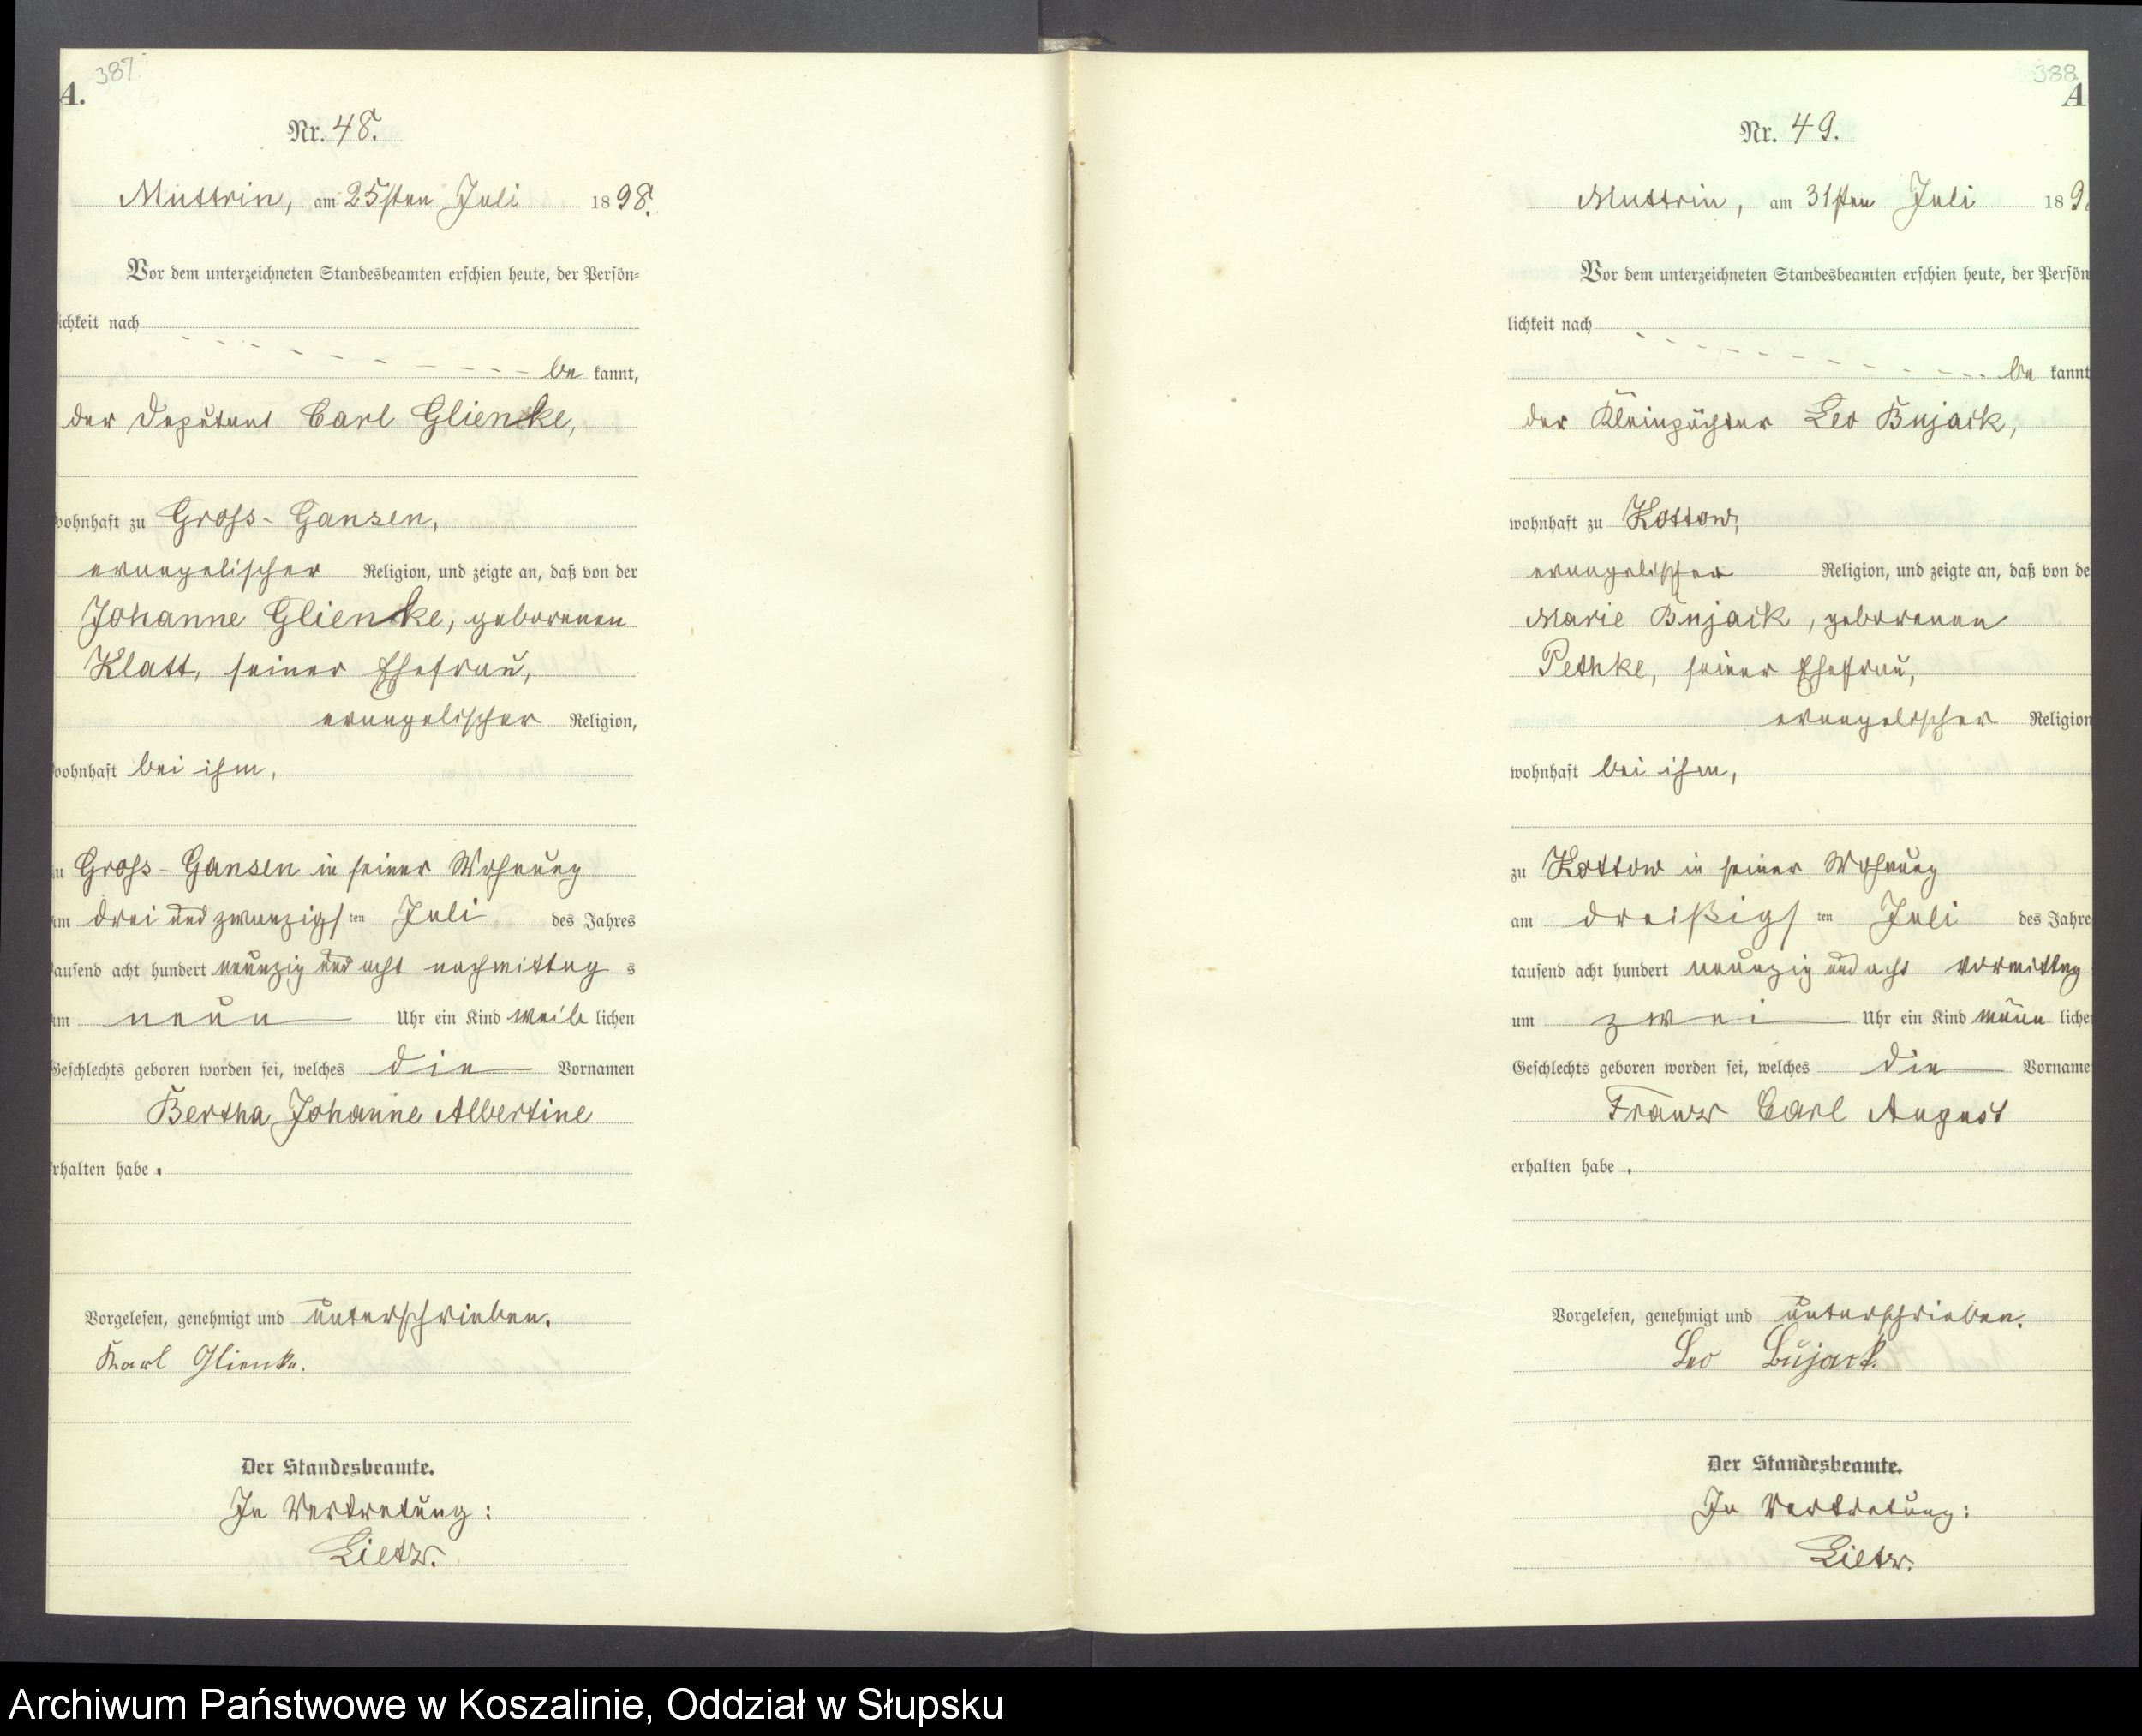 387
A.
Nr. 48.
Muttrin, am 25sten Juli 1898.
Vor dem unterzeichneten Standesbeamten erschien heute, der Persön-
lichkeit nach
be kannt,
der Deputant Carl Gliencke,
wohnhaft zu Gross-Gansen,
evangelischer Religion, und zeigte an, daß von der
Johanne Glienke, geborenen
Klatt, seiner Ehefrau,
evangelischer Religion,
wohnhaft bei ihm,
zu Gross-Gansen in seiner Wohnung
am drei und zwanzigsten Juli des Jahres
tausend acht hundert neunzig und acht nachmittag s
um neun Uhr ein Kind weib lichen
Geschlechts geboren worden sei, welches die Vornamen
Bertha Johanne Albertine
erhalten habe.
Vorgelesen, genehmigt und unterschrieben.
Karl Glienke.
Der Standesbeamte.
In Vertretung:
Lietz.
388
A
Nr. 49.
Muttrin, am 31sten Juli 189
Vor dem unterzeichneten Standesbeamten erschien heute, der Persön
lichkeit nach
be kannt
der Kleinpächter Leo Bujack,
wohnhaft zu Kottow,
evangelischer Religion, und zeigte an, daß von de
Marie Bujack, geborenen
Pethke, seiner Ehefrau,
evangelischer Religion
wohnhaft bei ihm,
zu Kottow in seiner Wohnung
am dreißigsten Juli des Jahre
tausend acht hundert neunzig und acht vormittag
um zwei Uhr ein Kind männ liche
Geschlechts geboren worden sei, welches die Vorname
Franz Carl August
erhalten habe.
Vorgelesen, genehmigt und unterschrieben.
Leo Bujack.
Der Standesbeamte.
In Vertretung:
Lietz.
Archiwum Państwowe w Koszalinie, Oddział w Słupsku